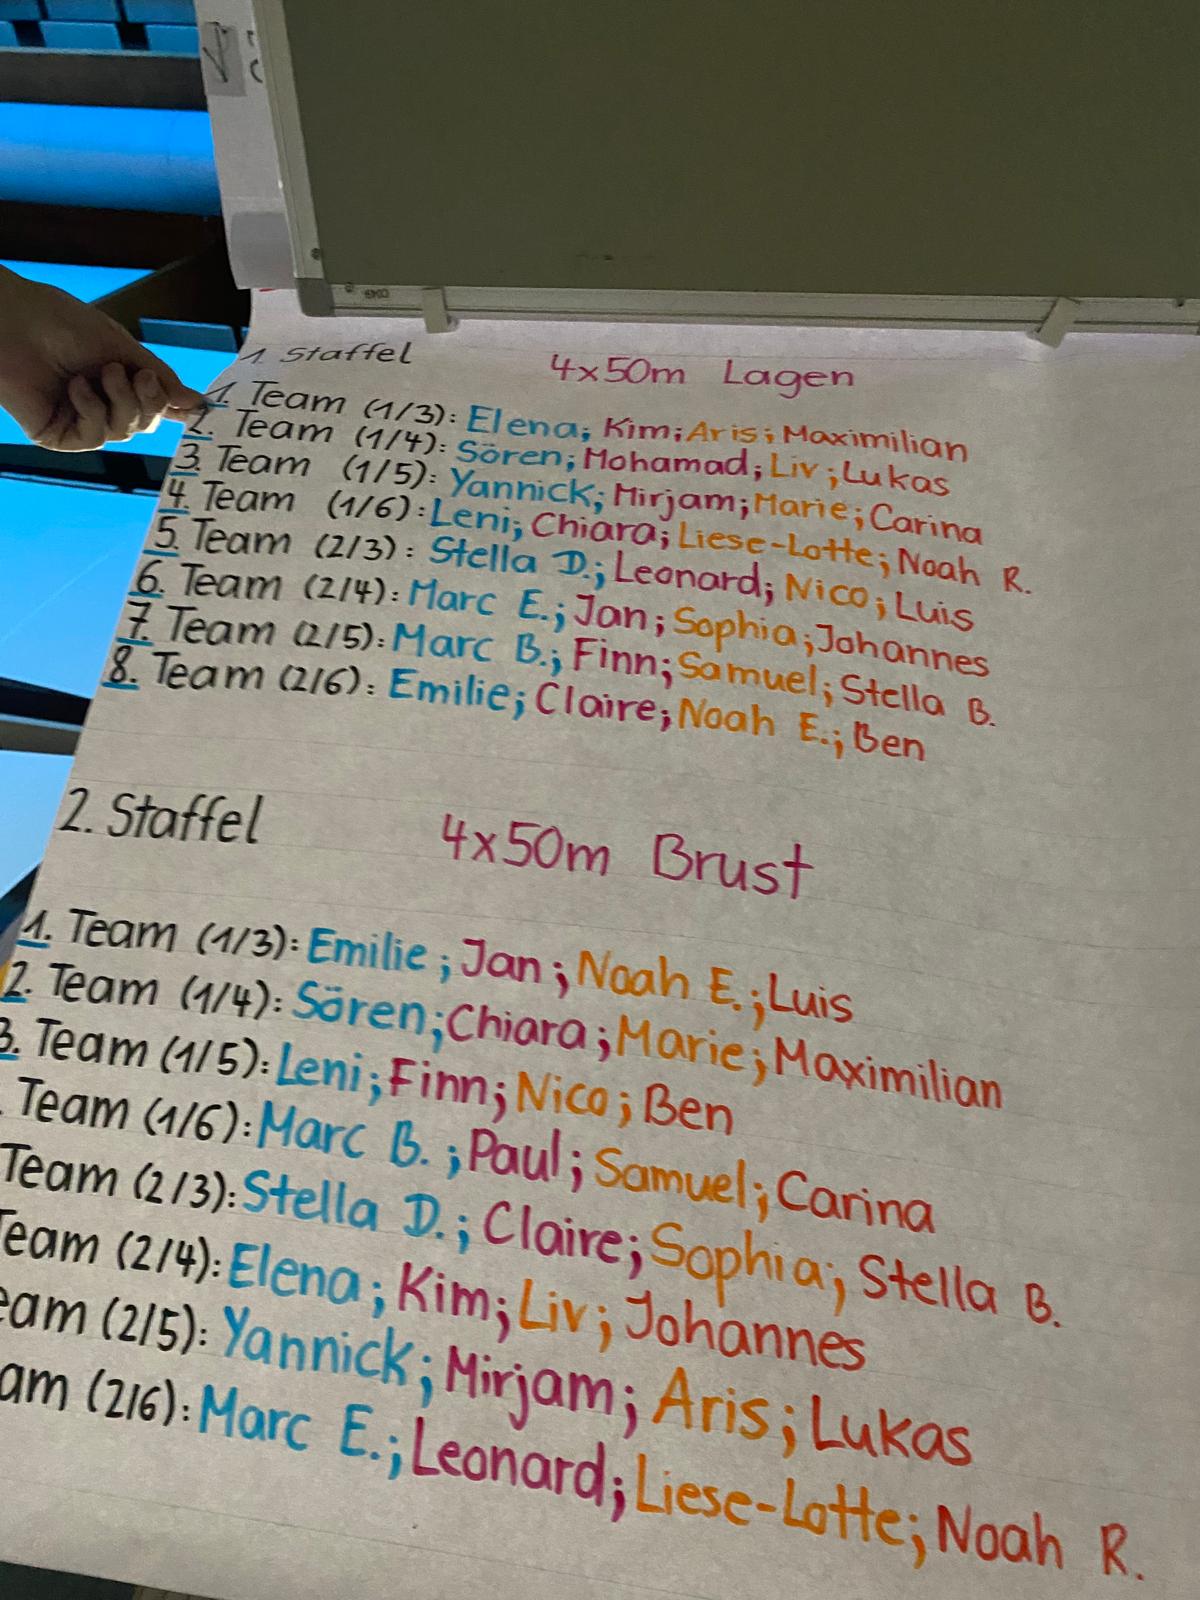 1. Staffel 4x50m Lagen
1. Team (1/3): Elena; Kim; Aris; Maximilian
2. Team (1/4): Sören; Mohamad; Liv; Lukas
3. Team (1/5): Yannick; Mirjam; Marie; Carina
4. Team (1/6): Leni; Chiara; Liese-Lotte; Noah R.
5. Team (2/3): Stella D.; Leonard; Nico; Luis
6. Team (2/4): Marc E.; Jan; Sophia; Johannes
7. Team (2/5): Marc B.; Finn; Samuel; Stella B.
8. Team (2/6): Emilie; Claire; Noah E.; Ben
2. Staffel 4x50m Brust
1. Team (1/3): Emilie; Jan; Noah E.; Luis
2. Team (1/4): Sören; Chiara; Marie; Maximilian
3. Team (1/5): Leni; Finn; Nico; Ben
. Team (1/6): Marc B.; Paul; Samuel; Carina
Team (2/3): Stella D.; Claire; Sophia; Stella B.
Team (2/4): Elena; Kim; Liv; Johannes
eam (2/5): Yannick; Mirjam; Aris; Lukas
am (2/6): Marc E.; Leonard; Liese-Lotte; Noah R.